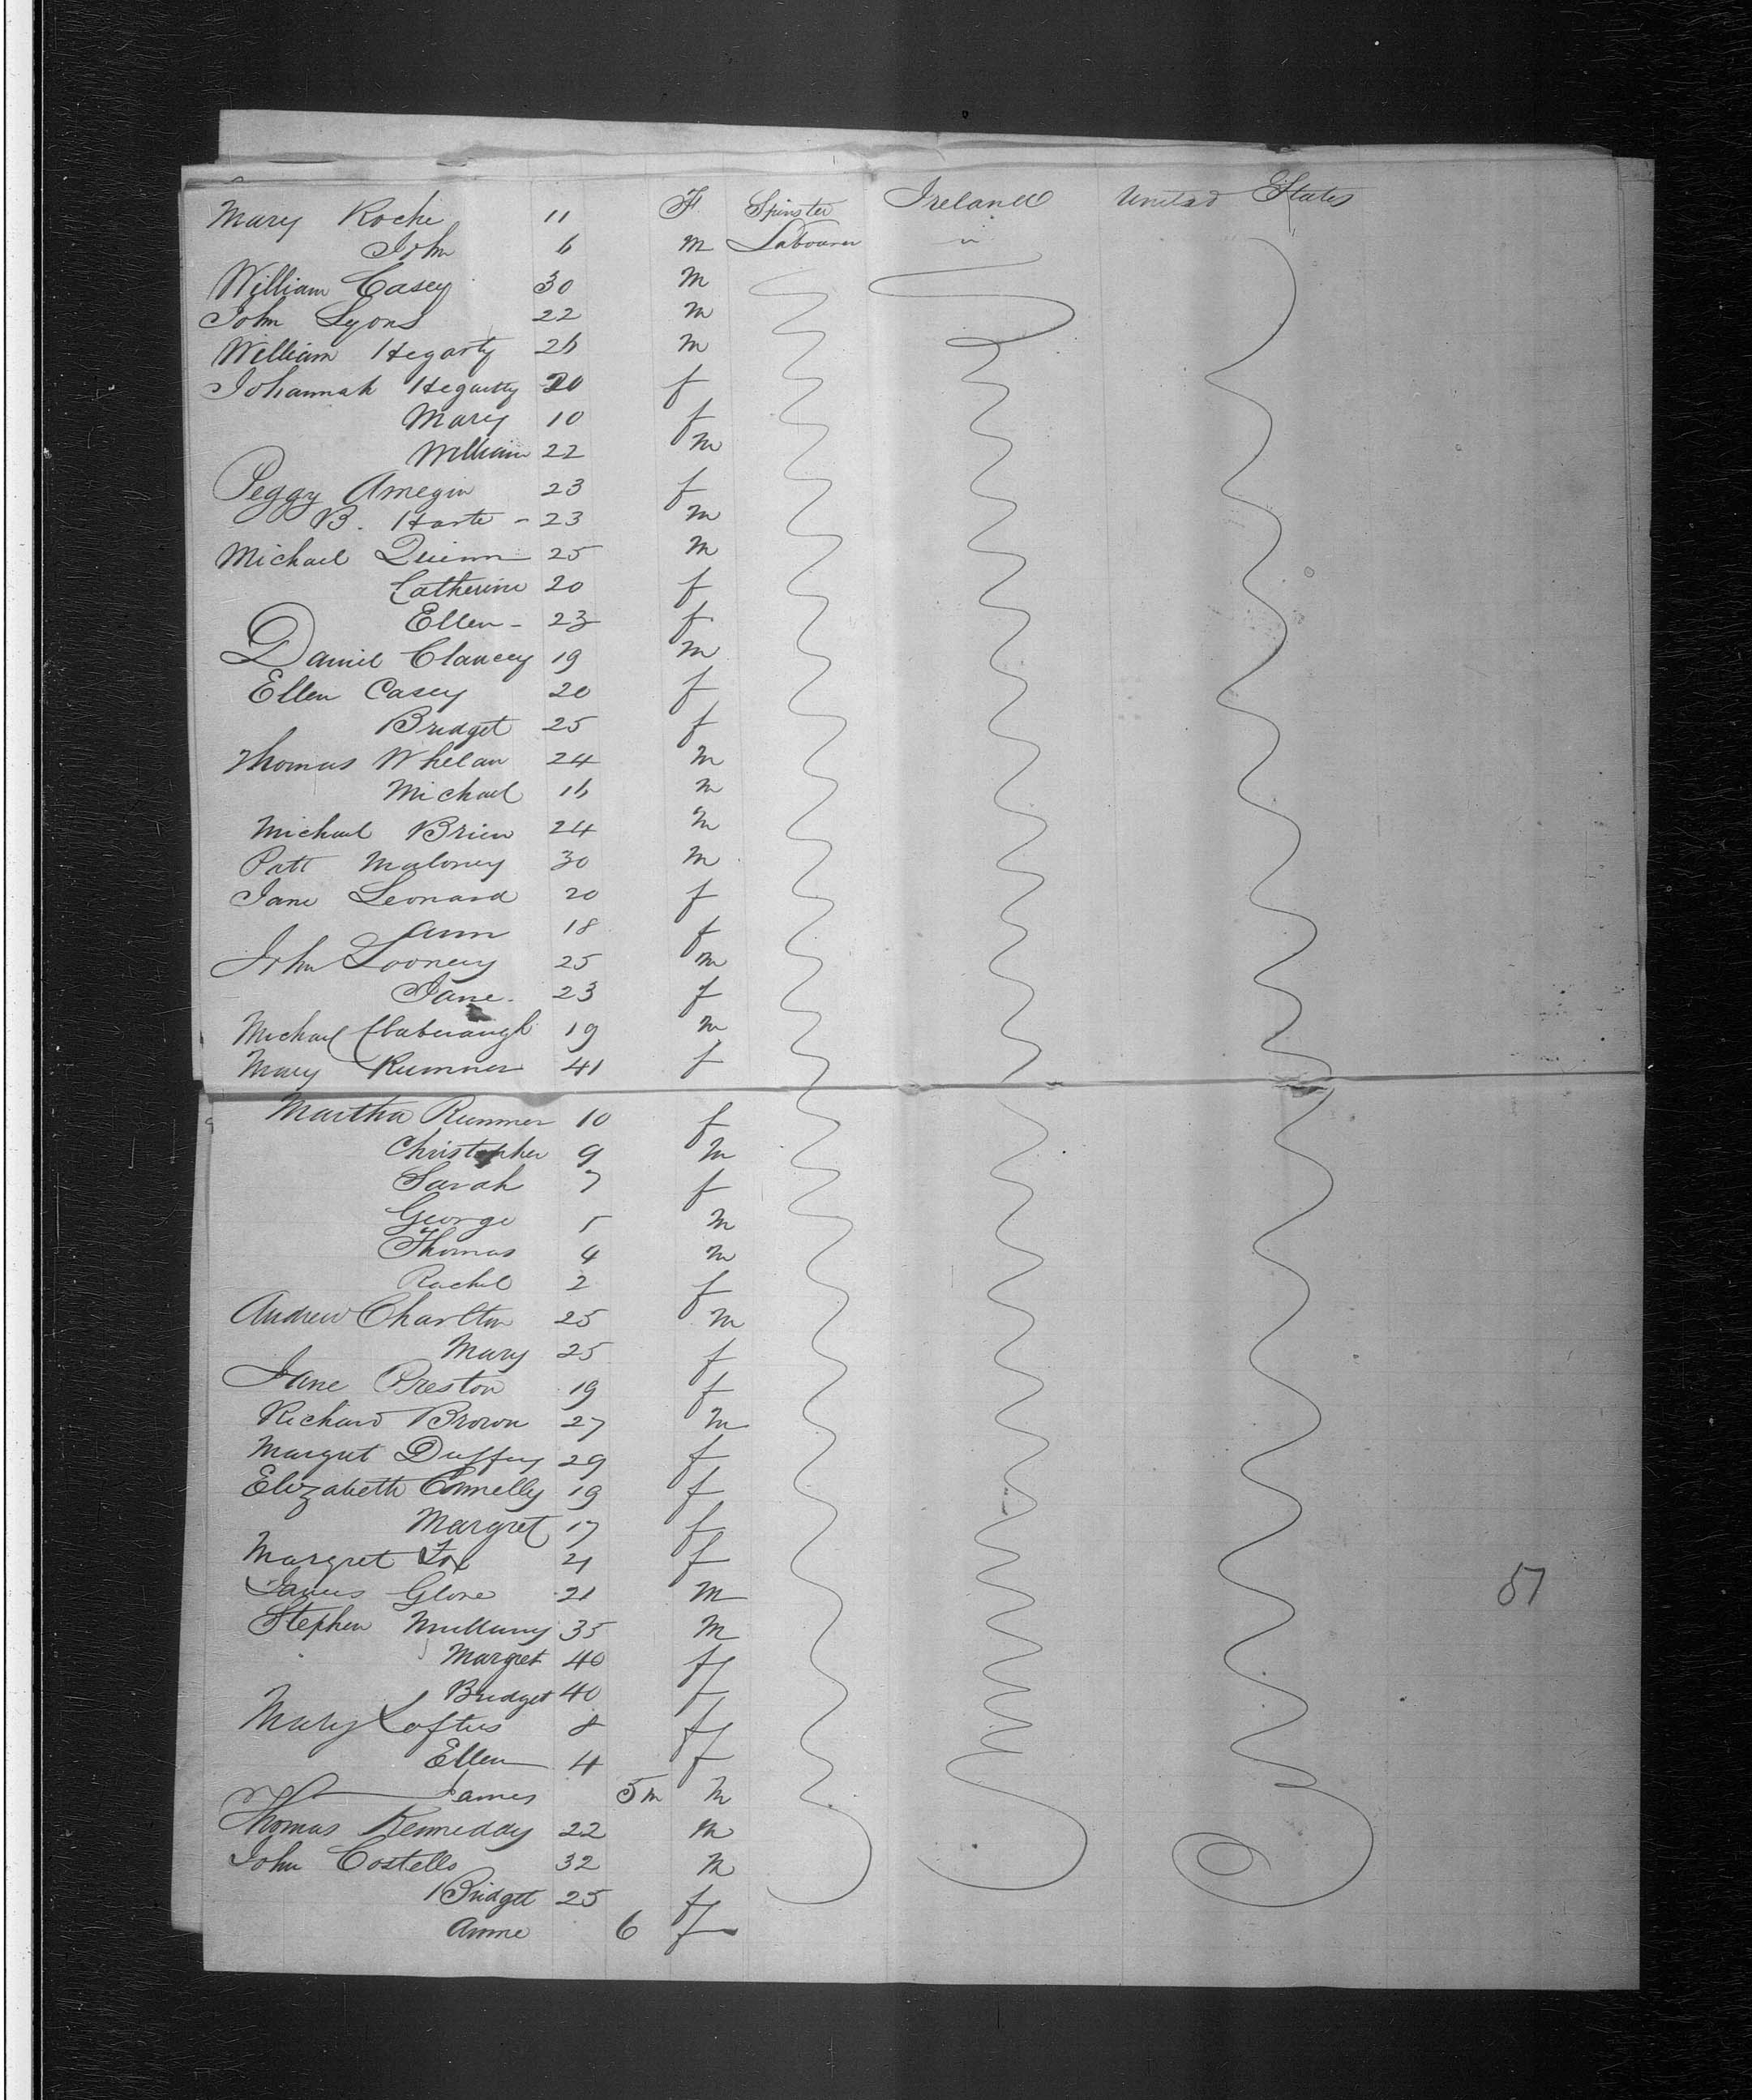 Mary Roche 11 F Spinster Ireland United States
John 6 m Labourer "
William Casey 30 m
John Lyons 22 m
William Hegarty 26 m
Johannah Hegartty 20 f
Mary 10 f
William 22 m
Peggy 23 f
B. Harte - 23 m
Michael Quinn 25 m
Catherine 20 f
Ellen - 23 f
Daniel Clancey 19 m
Ellen Casey 20 f
Bridget 25 f
Thomas Whelan 24 m
Michael 16 m
Michael Brien 24 m
Patt Maloney 30 m
Jane Leonard 20 f
Ann 18 f
John Looney 25 m
Jane. 23 f
Michael 19 m
Mary Rummer 41 f
Martha Rummer 10 f
Christopher 9 m
Sarah 7 f
George 5 m
Thomas 4 m
Rachel 2 f
Andrew Charlton 25 m
Mary 25 f
Jane Preston 19 f
Richard Brown 27 m
Margret Duffey 29 f
Elizabeth Connelly 19 f
Margret 17 f
Margret Fox 21 f
James Glore 21 m
Stephen Mullany 35 m
Margret 40 f
Bridget 40 f
Mary Loftus 8 f
Ellen 4 f
James 5m m
Thomas Kenneddy 22 m
John Costello 32 m
Bridget 25 f
Anne 6 f
51